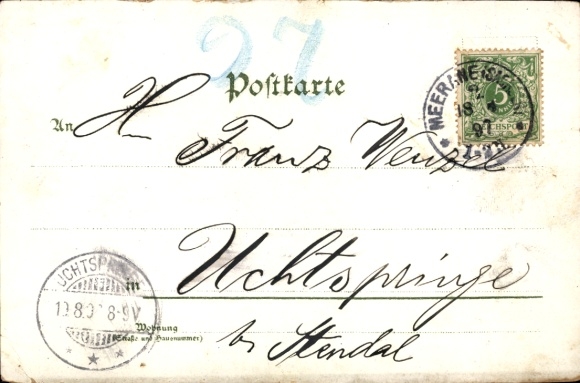 97
Postkarte
An H Franz Wenzel
in Uchtspringe
Wohnung
(Straße und Hausnummer)
b/ Stendal
MEERANE (SACHSEN)
18 8
97
5
REICHSPOST
UCHTSPRINGE
19.8.9 8-9V